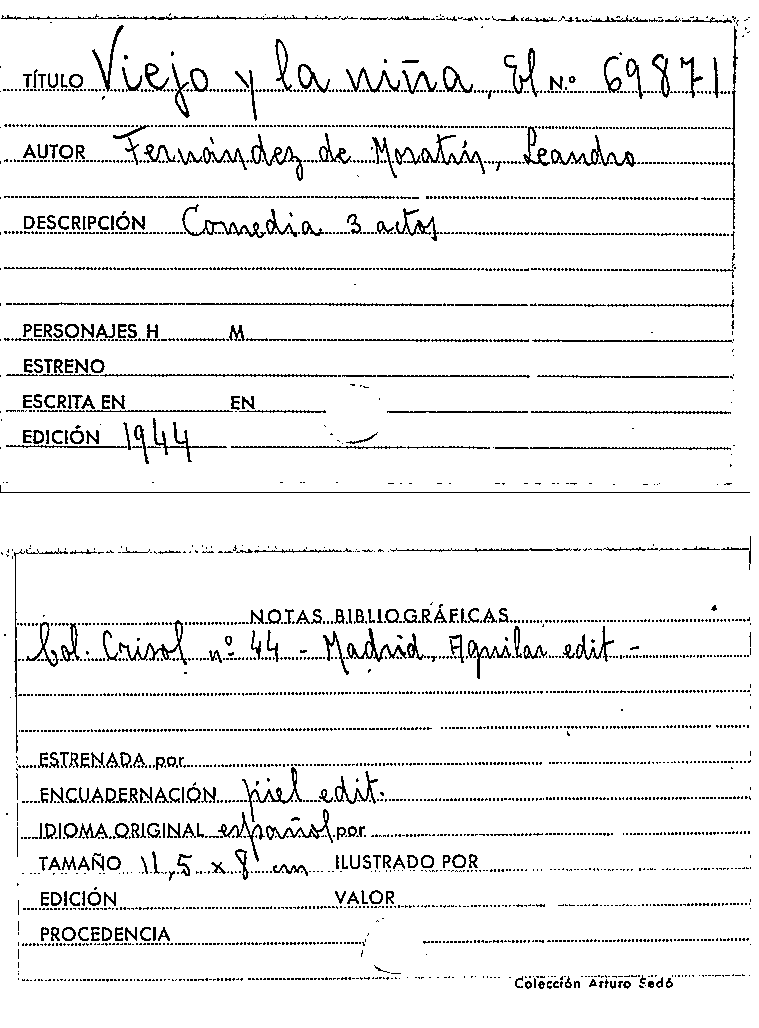 TÍTULO Viejo y la niña, El N.º 69871
AUTOR Fernández de Moratín, Leandro
DESCRIPCIÓN Comedia 3 actos
PERSONAJES H M
ESTRENO
ESCRITA EN EN
EDICIÓN 1944
NOTAS BIBLIOGRÁFICAS
Col. Crisol nº 44 - Madrid, Aguilar edit -
ESTRENADA por
ENCUADERNACIÓN piel edit.
IDIOMA ORIGINAL español por
TAMAÑO 11,5 x 8 cm ILUSTRADO POR
EDICIÓN VALOR
PROCEDENCIA
Colección Arturo Sedó